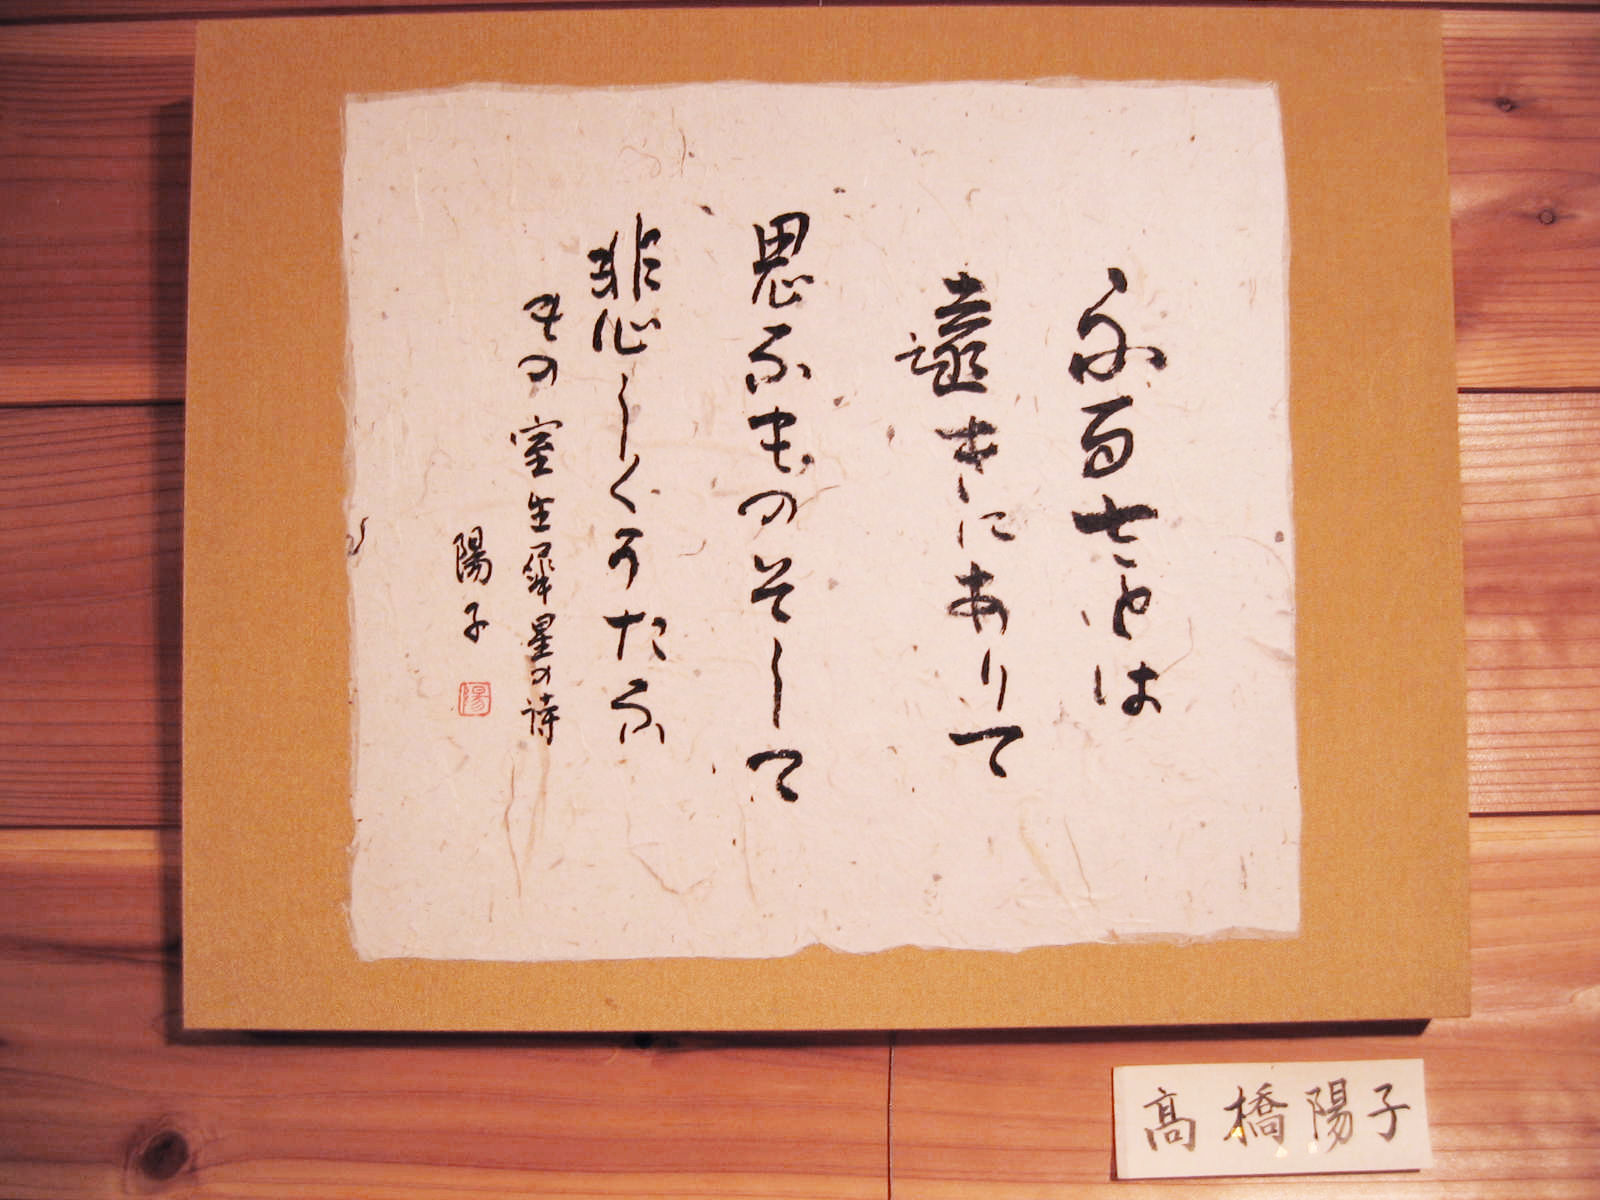 ふるさとは
遠きにありて
思ふものそして
悲しくうたふ
もの 室生犀星の詩
陽子
陽
高橋陽子